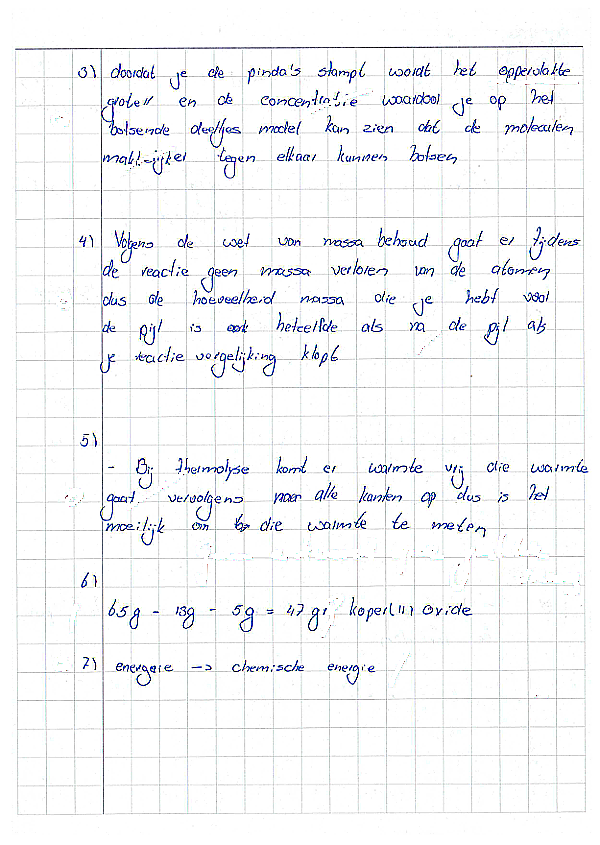 3) doordat je de pinda's stampt wordt het oppervlakte
groter en de concentratie waardoor je op het
botsende deeltjes model kan zien dat de moleculen
makkelijker tegen elkaar kunnen botsen
4) Volgens de wet van massa behoud gaat er tijdens
de reactie geen massa verloren van de atomen
dus de hoeveelheid massa die je hebt voor
de pijl is hetzelfde als na de pijl als
je reactie vergelijking klopt
5)
- Bij thermolyse komt er warmte vrij die warmte
gaat vervolgens naar alle kanten op dus is het
moeilijk om die warmte te meten
6)
65g - 13g - 5g = 47 gr koper(II) oxide
7) energie -> chemische energie